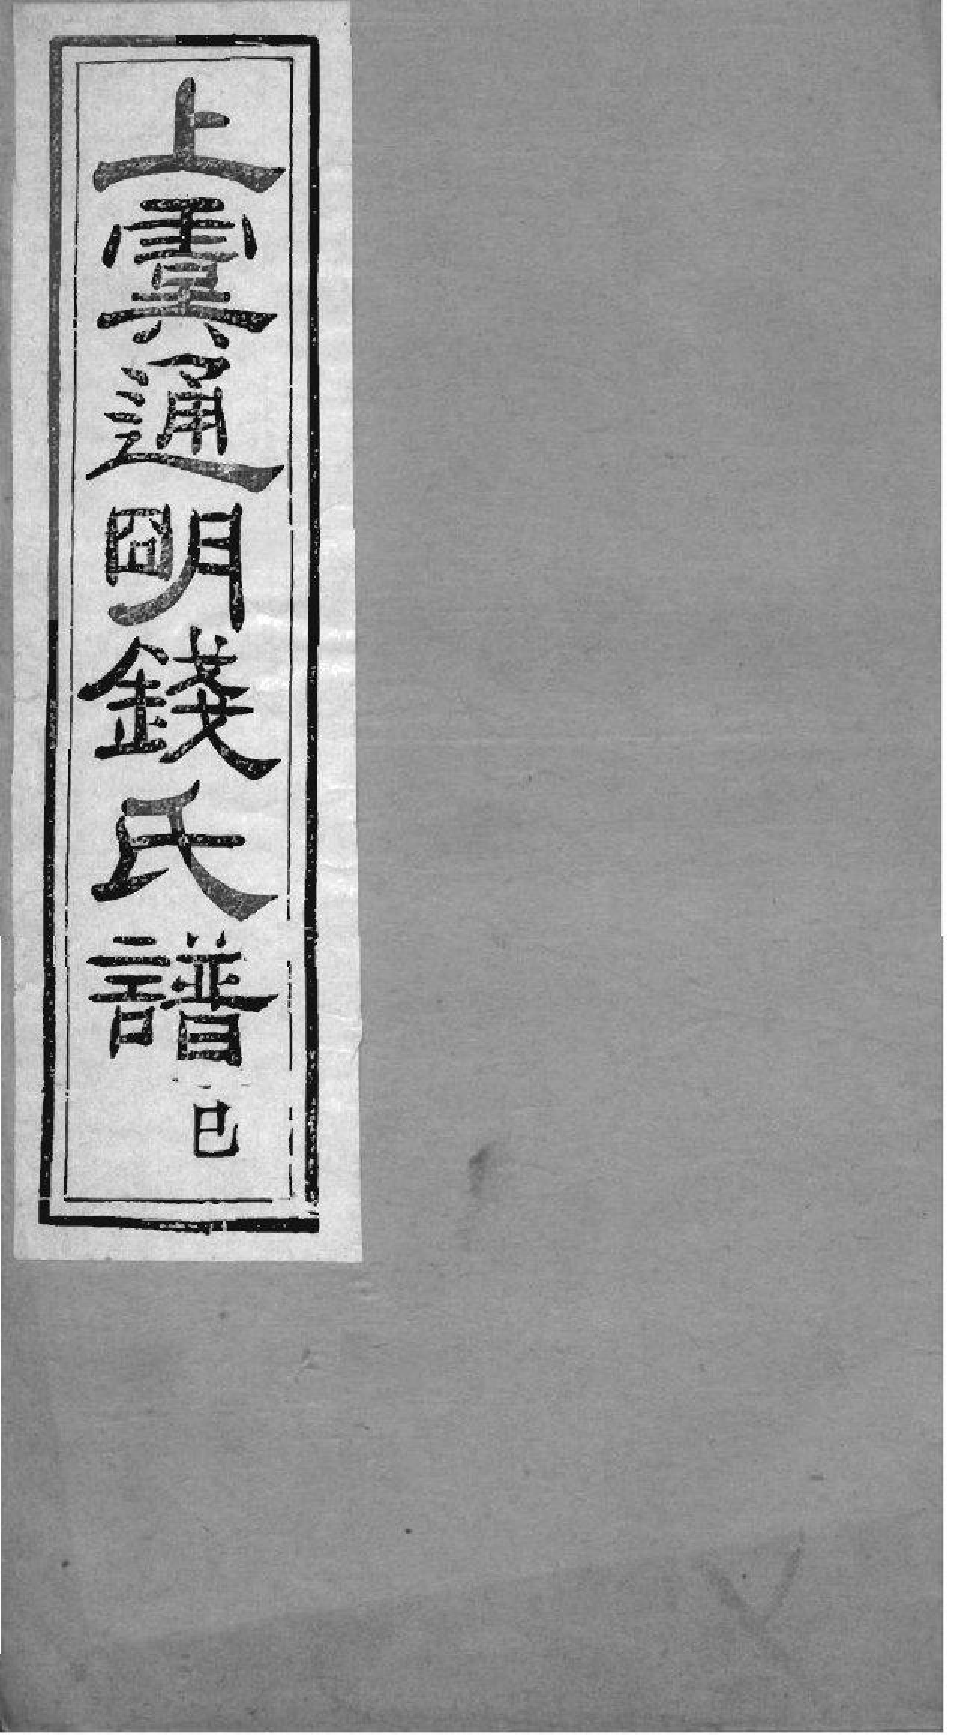 上虞通明錢氏譜 巳